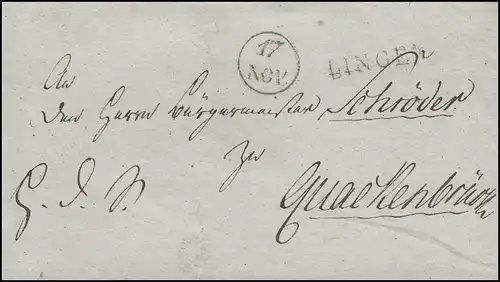 17
NOV.
LINGEN
An
den Herrn Bürgermeister Schröder
zu
Quackenbrück
H. D. S.